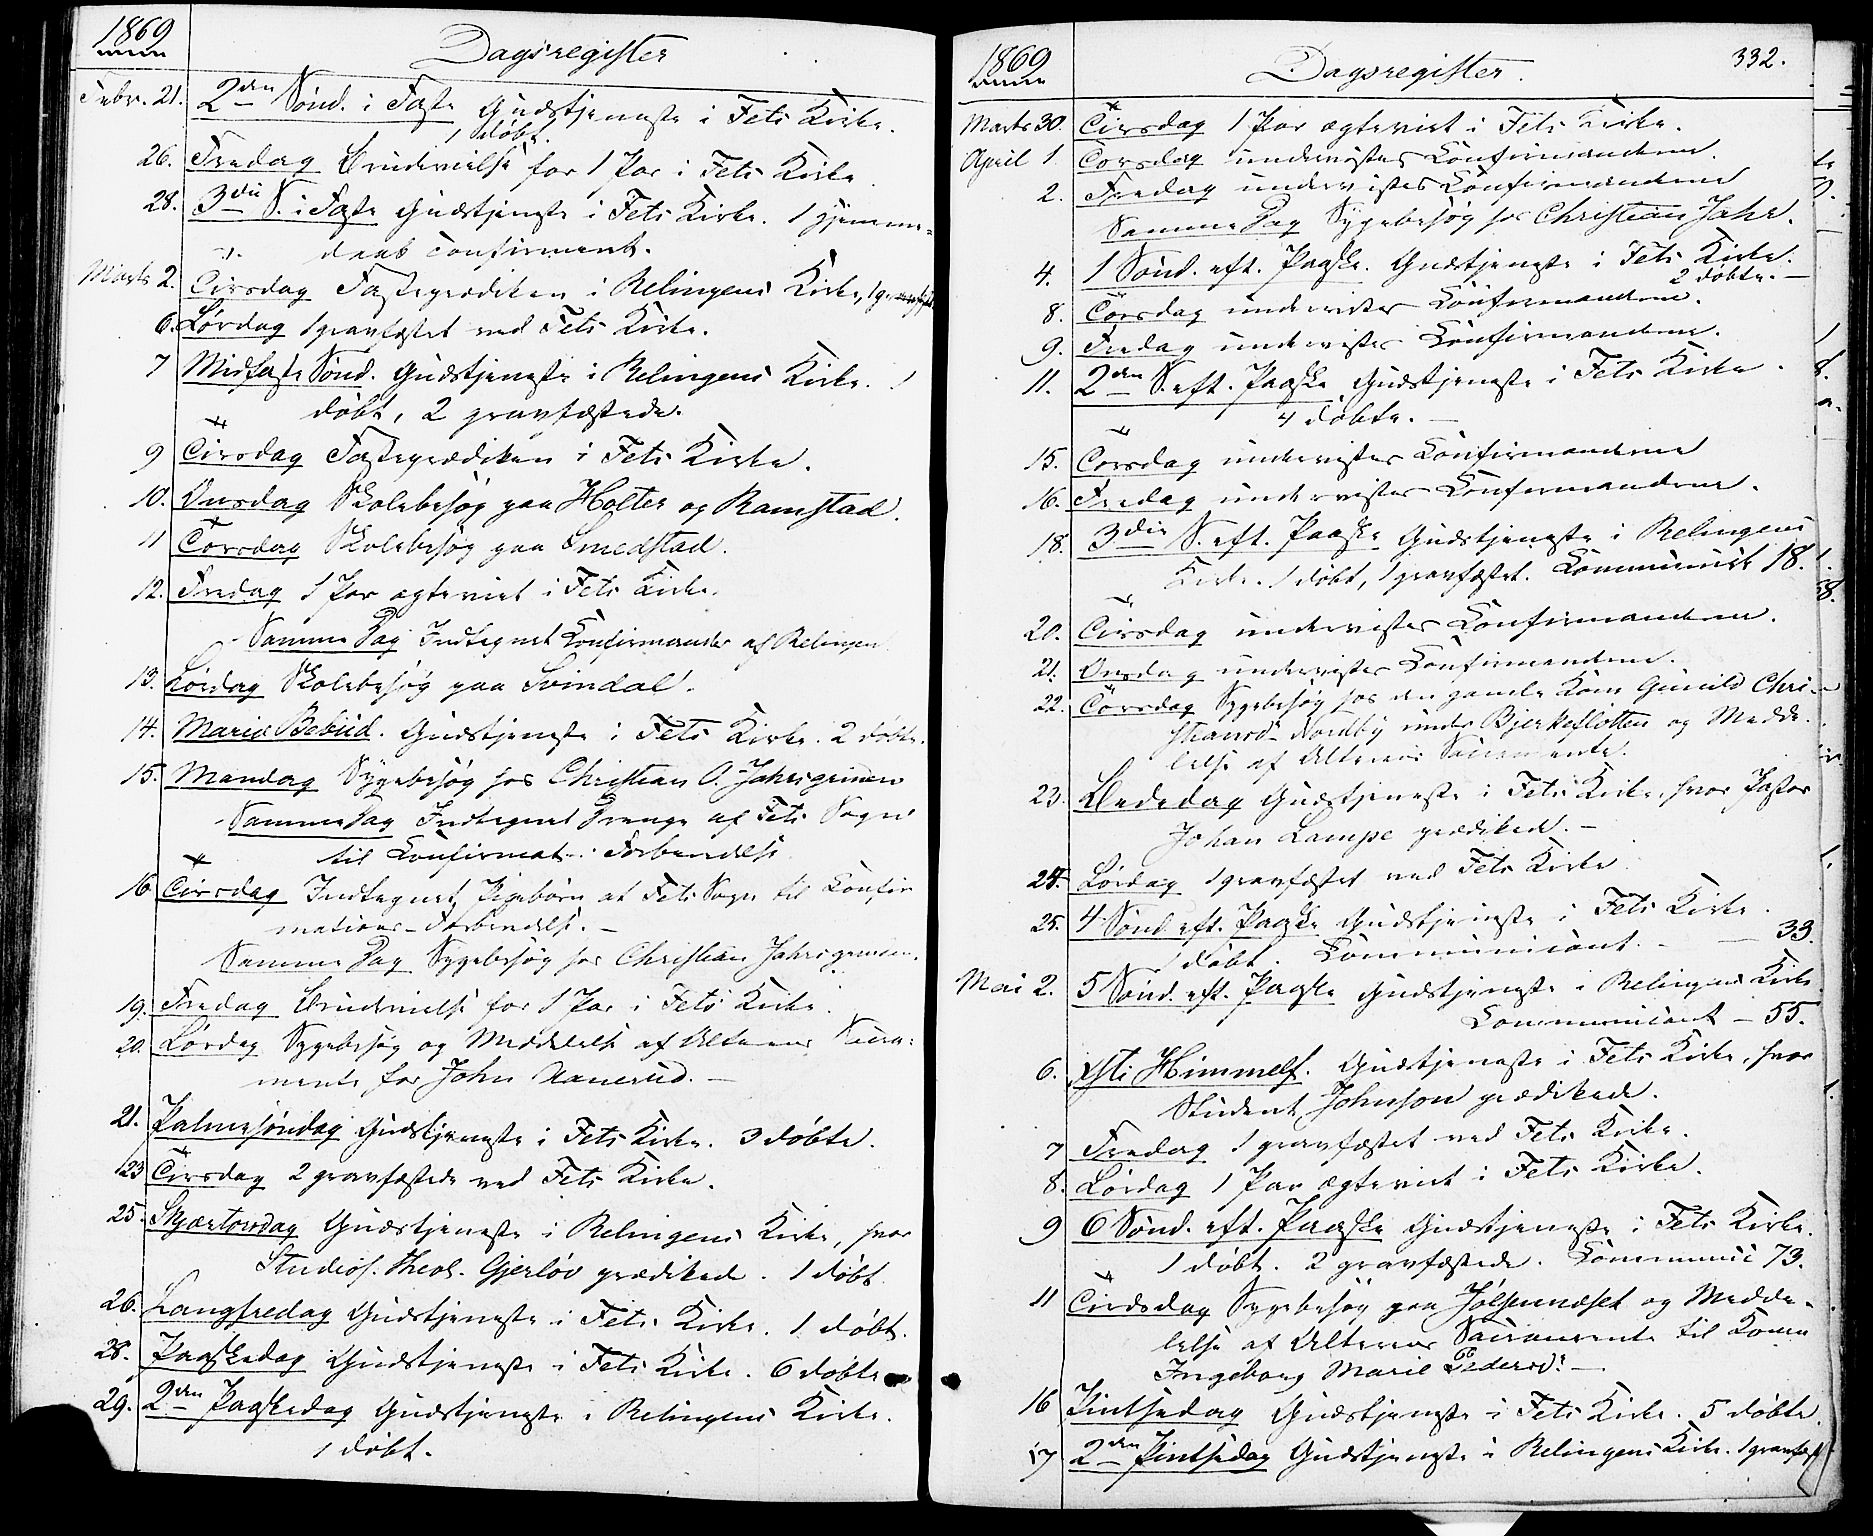 1869
Dagsregister
Febr. 21. 2den Sönd. i Faste Gudstjeneste i Fets Kirke.
1 döbt.
26. Fredag Brudevielse for 1 Par i Fets Kirke
28. 3die S. i Faste Gudstjeneste i Fets Kirke. 1 hjemme-
daab confirmert.
Marts 2. Tirsdag Fasteprædiken i Relingens Kirke, 1 gravfæstet
6. Lørdag 1 gravfæstet ved Fets Kirke.
7 Midfaste Sönd. Gudstjeneste i Relingens Kirke. 1
döbt, 2 gravfæstede.
9 Tirsdag Fasteprædiken i Fets Kirke.
10. Onsdag Skolebesøg paa Holter og Ramstad.
11 Torsdag Skolebesøg paa Smedstad.
12. Fredag 1 Par ægteviet i Fets Kirke.
Samme Dag Indtegnet Confirmander af Relingen
13. Lørdag Skolebesøg paa Svindal.
14. Mariæ Bebud. Gudstjeneste i Fets Kirke. 2 döbte.
15. Mandag Sygebesøg hos Christian O. Jahrsgrinden
Samme Dag Indtegnet Drenge af Fets Sogn
til Confirmat. Forberedelse
16 Tirsdag Indtegnet Pigebörn af Fets Sogn til Confir
mations-Forberedelse. -
Samme Dag Sygebesøg hos Christian Jahrsgrinden.
19. Fredag Brudevielse for 1 Par i Fets Kirke.
20. Lørdag Sygebesøg og Meddelelse af Alterens Sacra-
mente for John Nanerud. -
21. Palmesöndag Gudstjeneste i Fets Kirke. 3 döbte.
23 Tirsdag 2 gravfæstede ved Fets Kirke.
25. Skjærtorsdag Gudstjeneste i Relingens Kirke, hvor
Studios. theol. Gjerløv prædikede. 1 döbt.
26. Langfredag Gudstjeneste i Fets Kirke. 1 döbt.
28. Paaskedag Gudstjeneste i Fets Kirke. 6 döbte
29. 2den Paaskedag Gudstjeneste i Relingens Kirke.
1 döbt.
1869
Dagsregister.
332.
Marts 30. Tirsdag 1 Par ægteviet i Fets Kirke.
April 1. Torsdag undervistes Confirmanderne.
2. Fredag undervistes Confirmanderne
Samme Dag Sygebesøg hos Christian Jahr.
4. 1 Sönd. eft. Paaske. Gudstjeneste i Fets Kirke.
2 döbte. -
8. Torsdag undervistes Confirmanderne.
9. Fredag undervistes Confirmanderne.
11. 2den S. eft. Paaske Gudstjeneste i Fets Kirke.
4 döbte. -
15. Torsdag undervistes Confirmanderne
16. Fredag undervistes Confirmanderne.
18. 3die S. eft. Paaske Gudstjeneste i Relingens
Kirke. 1 döbt, 1 gravfæstet. Communic 18.
20. Tirsdag undervistes Confirmanderne.
21. Onsdag undervistes Confirmanderne.
22. Torsdag Sygebesøg hos den gamle Kone Gunild Chri-
stiansd. Nordby under Bjerkeslotten og Medde-
lelse af Alterens Sacramente.
23. Bededag Gudstjeneste i Fets Kirke, hvor Pastor
Johan Lampe prædikede. -
24. Lørdag 1 gravfæstet ved Fets Kirke
25. 4 Sönd. eft. Paaske Gudstjeneste i Fets Kirke.
1 döbt. Communicant. - 33.
Mai 2. 5 Sönd. eft. Paaske Gudstjeneste i Relingens Kirke
Communicant - 55.
6. Xsti Himmelf. Gudstjeneste i Fets Kirke, hvor
Student Johnson prædikede.
7 Fredag 1 gravfæstet ved Fets Kirke.
8. Lørdag 1 Par ægteviet i Fets Kirke.
9 6 Sönd. eft. Paaske Gudstjeneste i Fets Kirke.
1 döbt. 2 gravfæstede. Communic 73.
11 Tirdsdag Sygebesøg paa og Medde-
lelse af Alterens Sacramente til Konen
Ingeborg Marie Pedersd. -
16 Pintsedag Gudstjeneste i Fets Kirke. 5 döbte.
17 2den Pintsedag Gudstjeneste i Relingens Kirke. 1 gravfæst